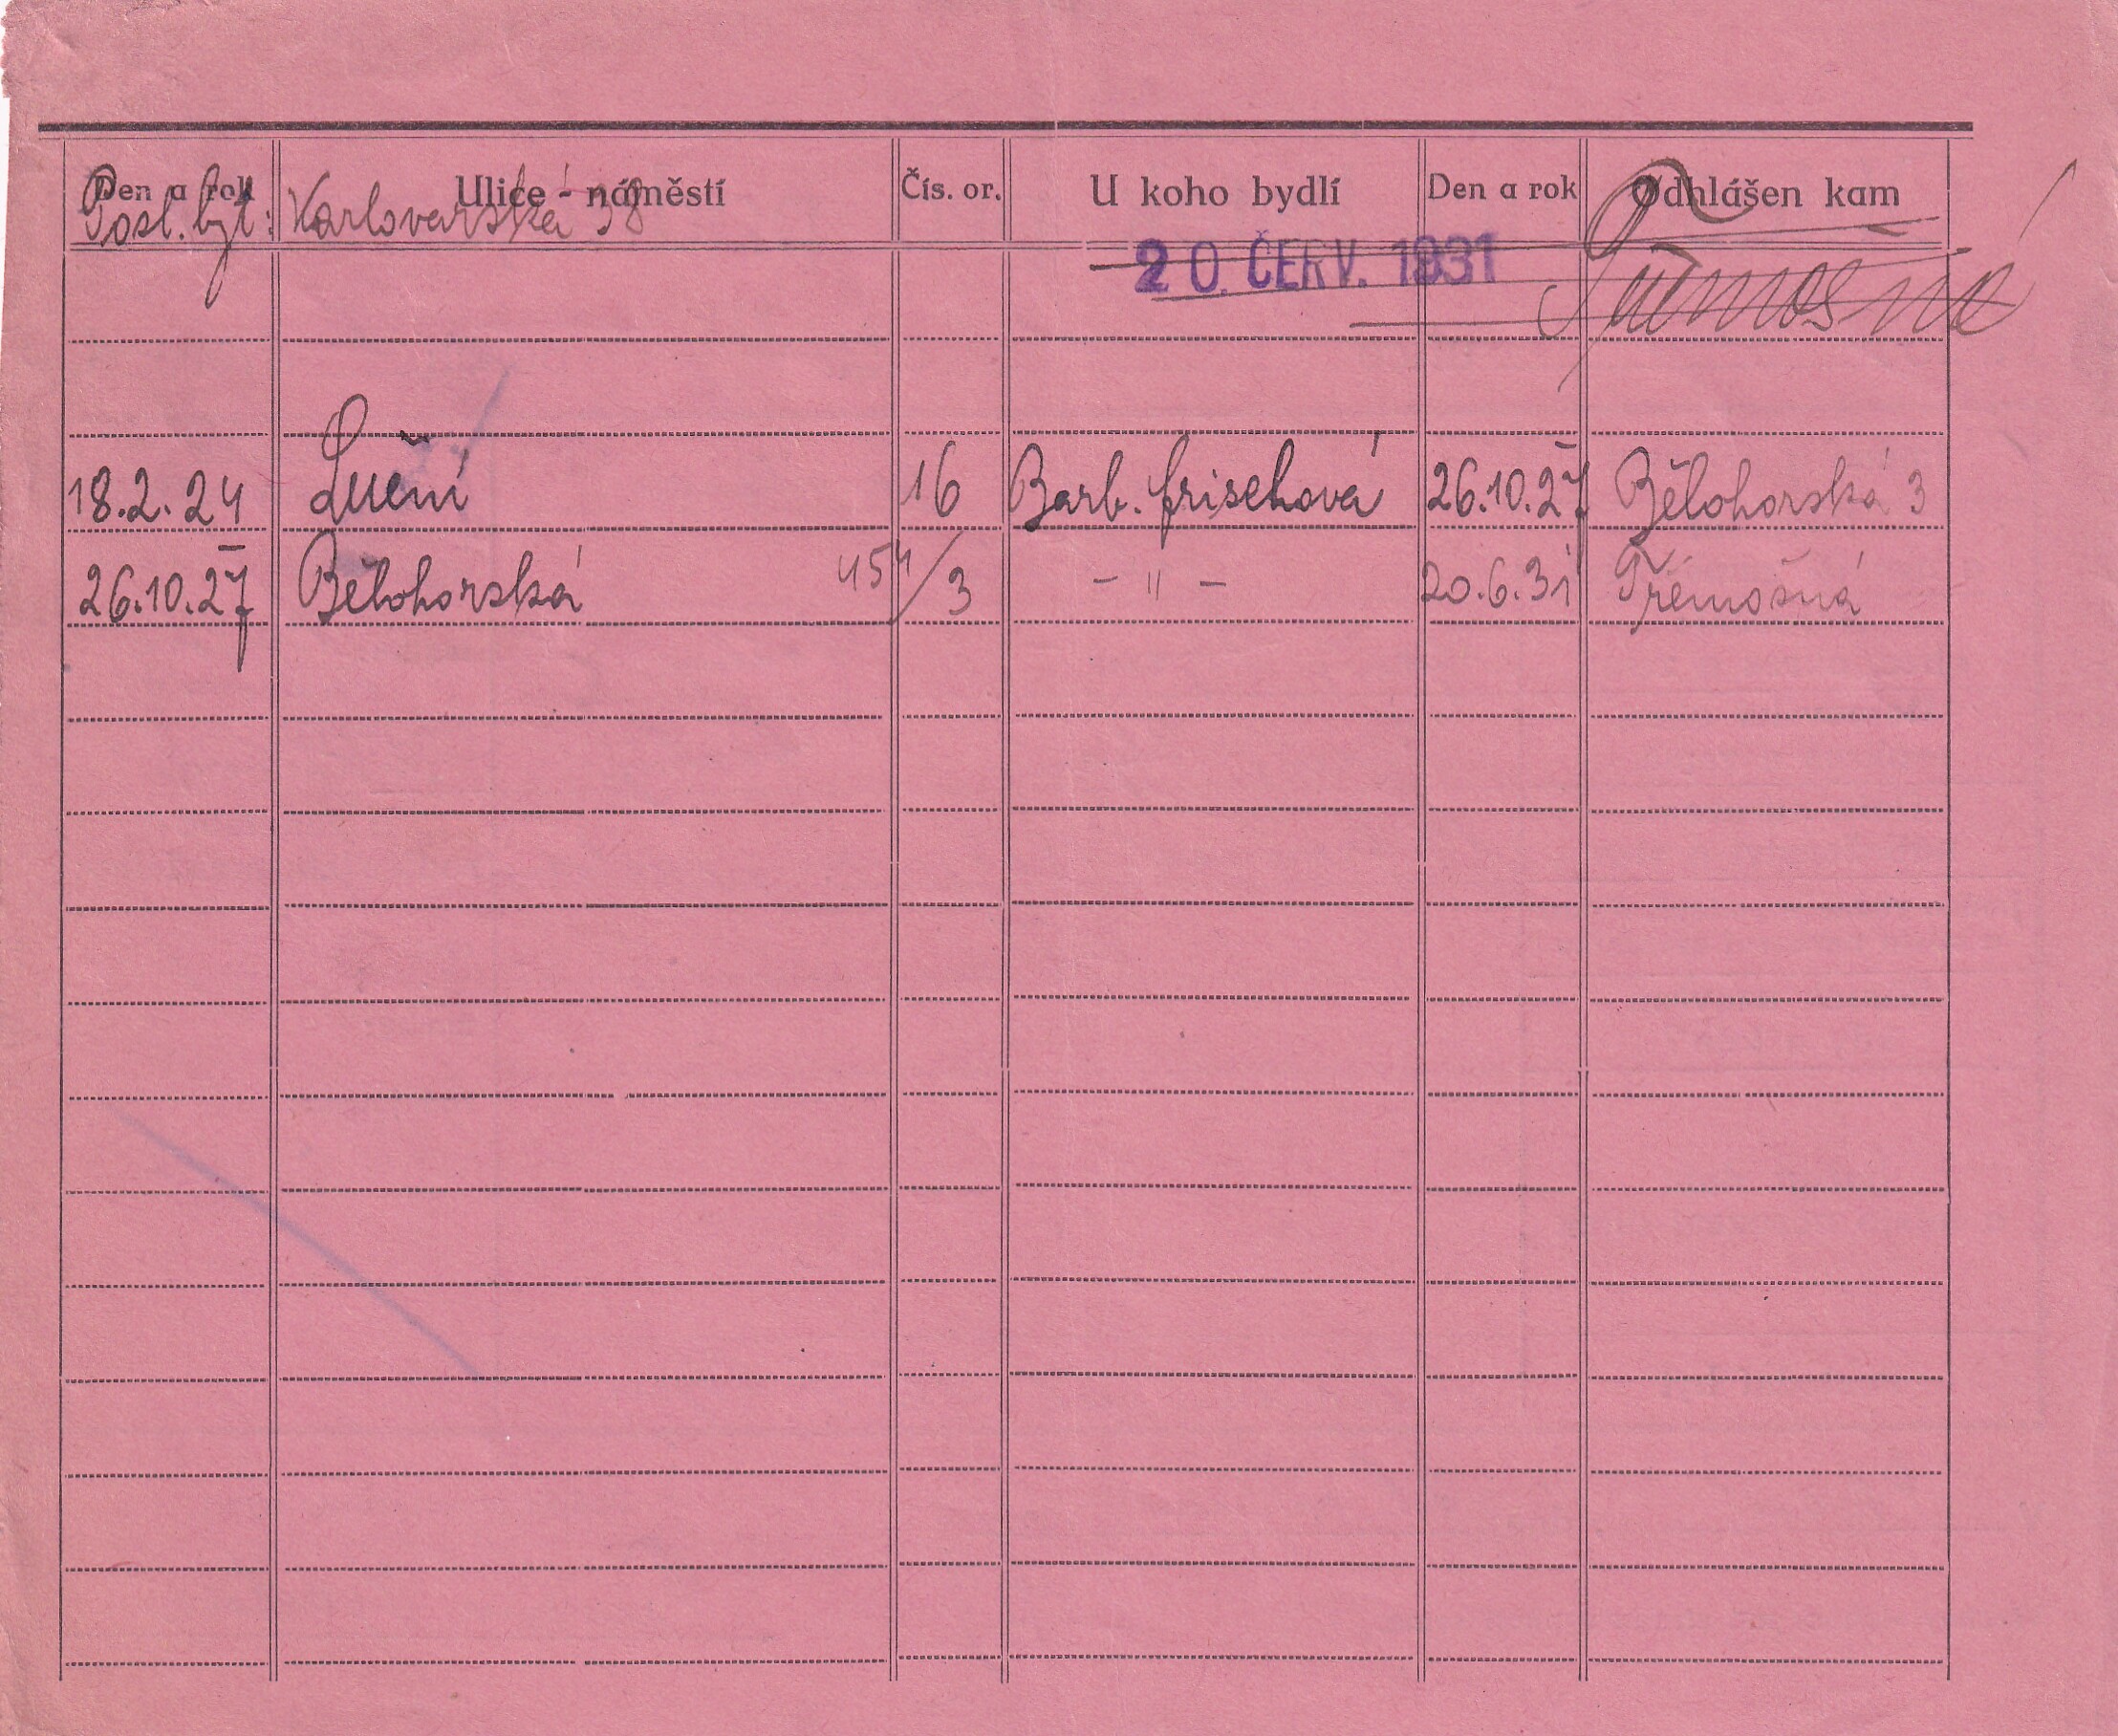 Den a rok Ulice - náměstí Čís. or. U koho bydlí Den a rok Odhlášen kam
Posl. byt: Karlovarská 38
20. ČERV. 1931 Třemošná
18.2.24 Luční 16 Barb. Frischová 26.10.27 Bělohorská 3
26.10.27 Bělohorská 454/3 - " - 20.6.31 Třemošná